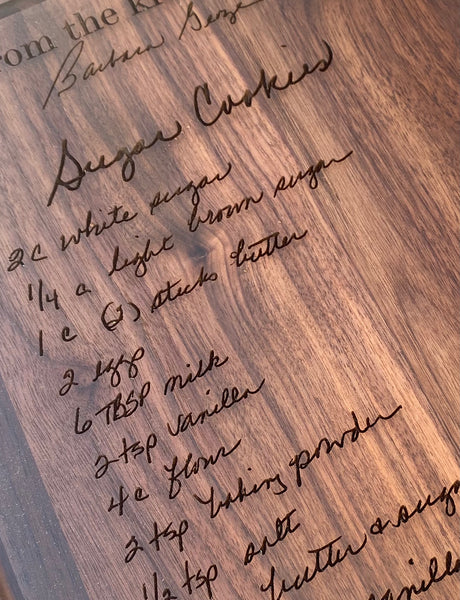 from the
Barbara
Sugar Cookies
2 c white sugar
1/4 c light brown sugar
1 c (2) sticks butter
2 eggs
6 TBSP milk
2 tsp vanilla
4 c flour
2 tsp baking powder
1/2 tsp salt
butter & suga
vanilla